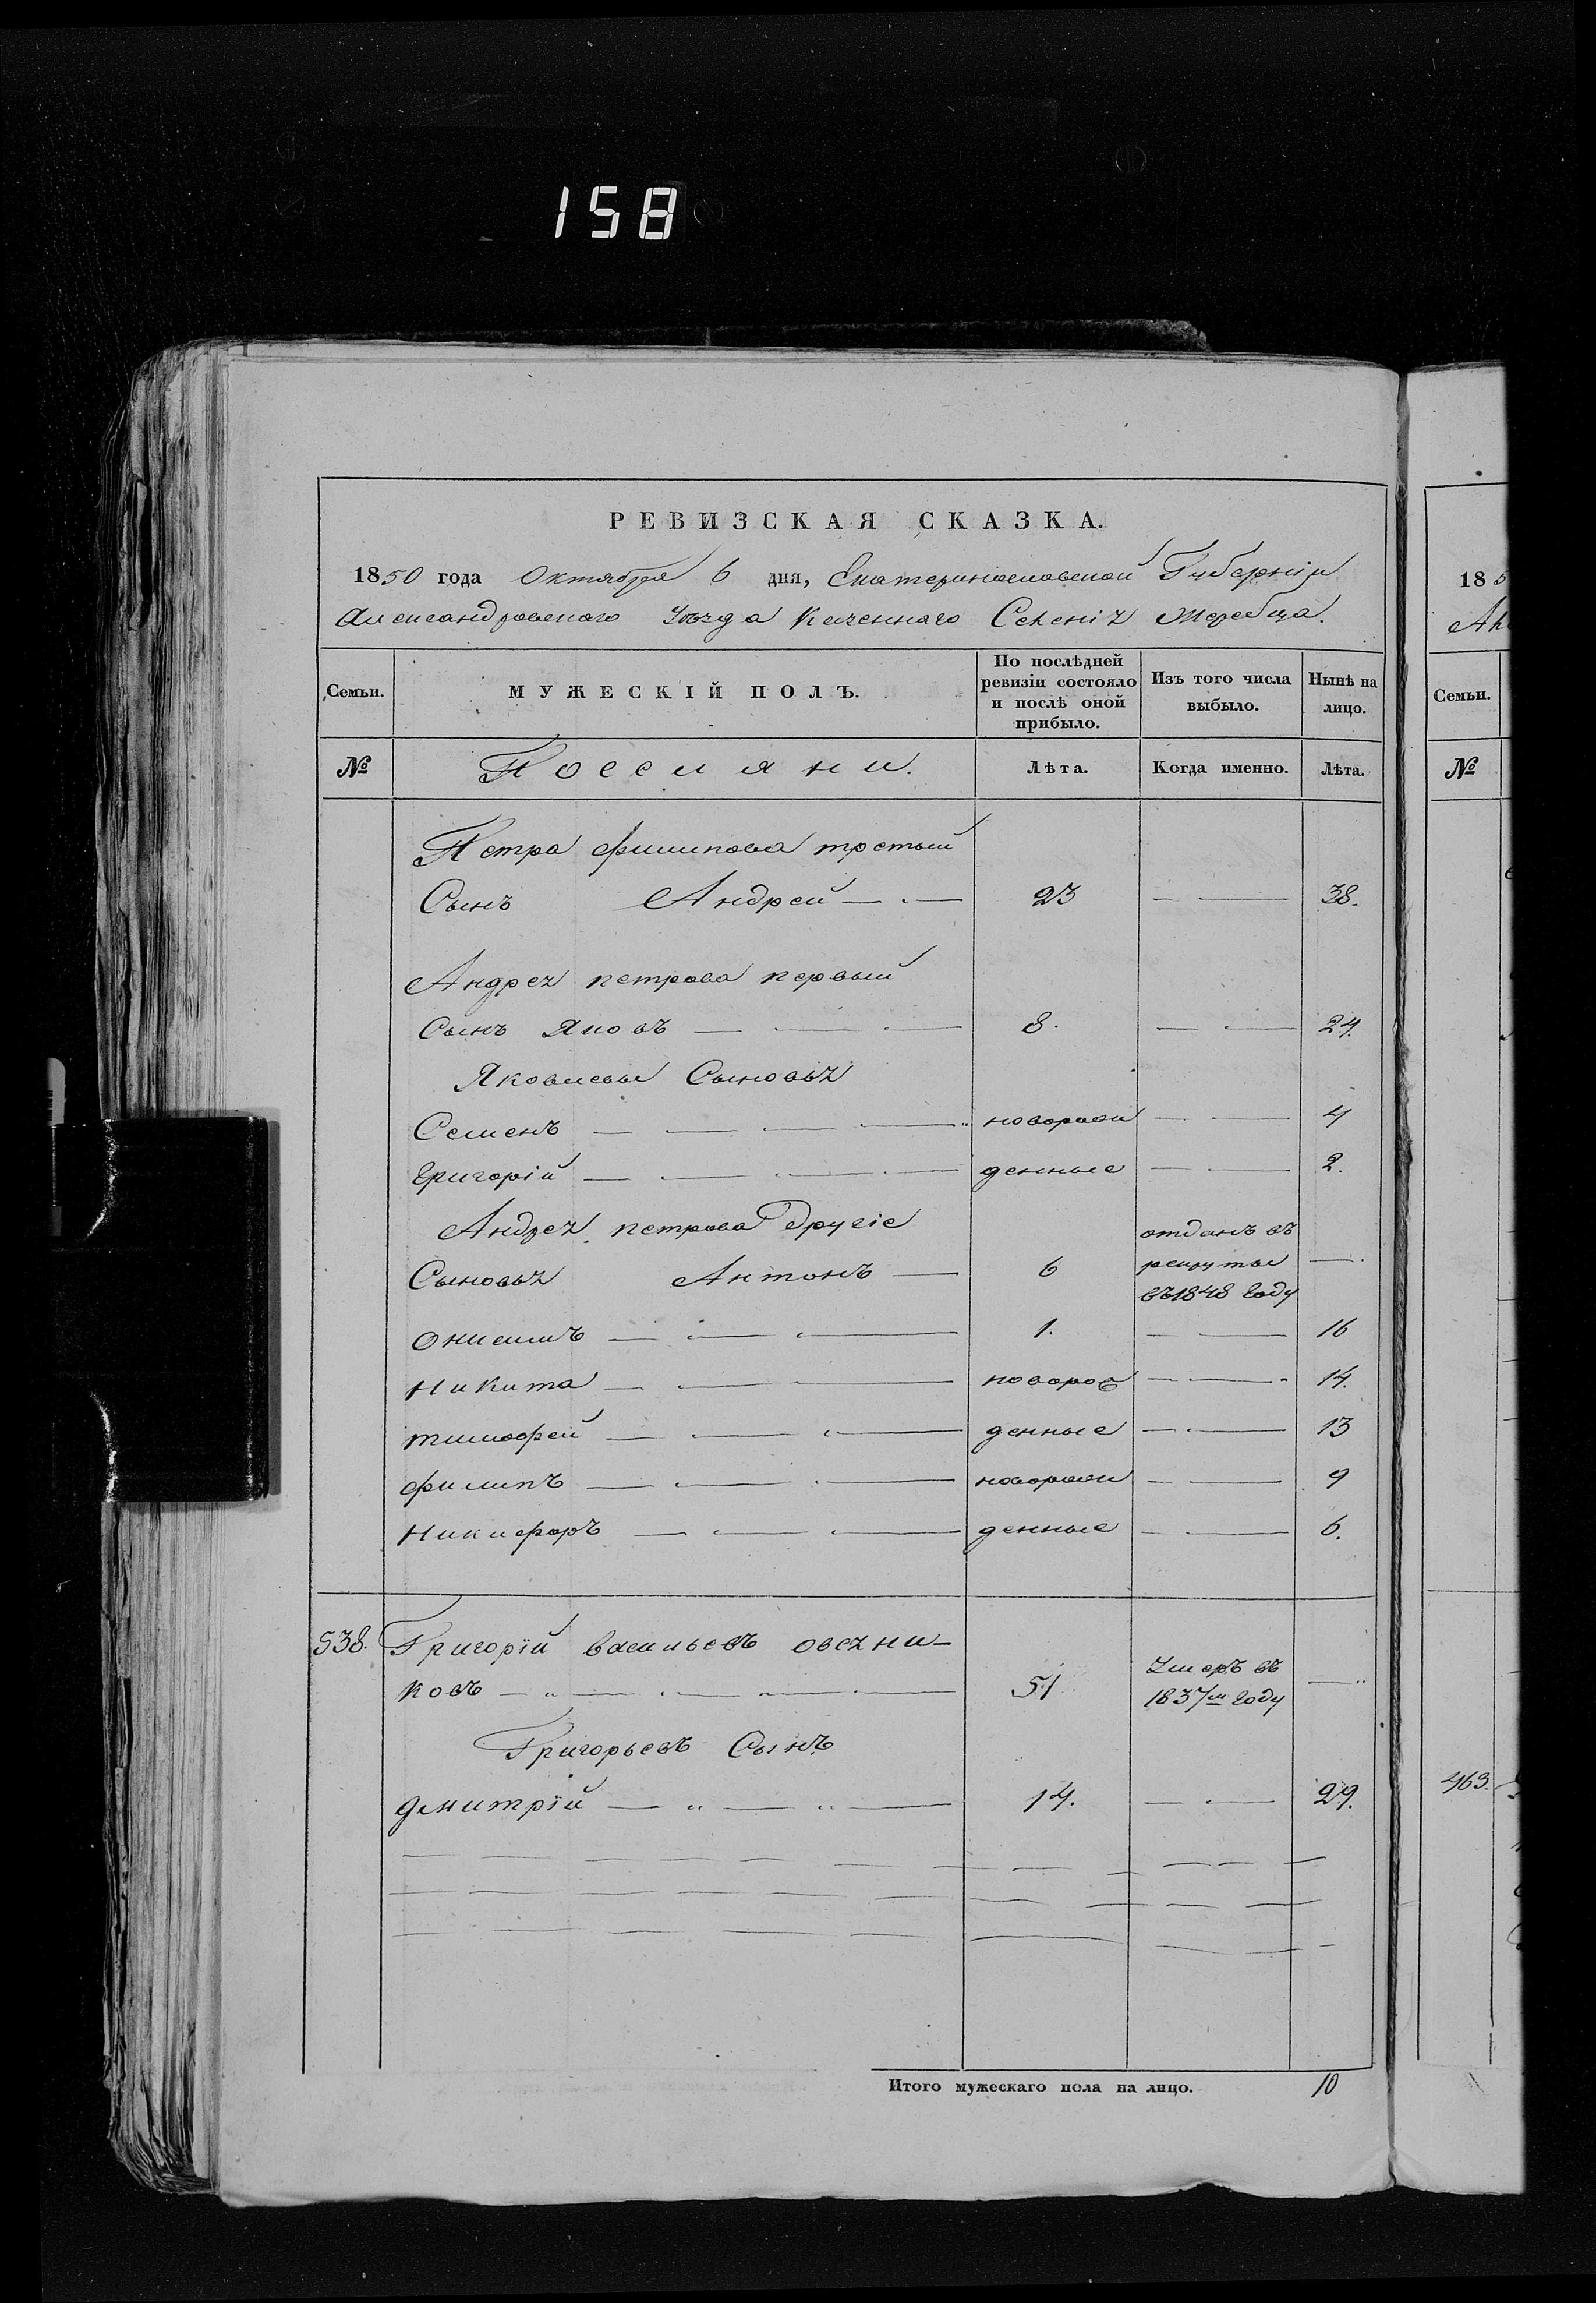 158
РЕВИЗСКАЯ СКАЗКА.
1850 года Октября 6 дня, Екатеринославской Губерніи
Александровскаго Уѣзда Казеннаго Селенія Жеребца.
Семьи.
МУЖЕСКІЙ ПОЛЪ.
По послѣдней ревизіи состояло и послѣ оной прибыло.
Изъ того числа выбыло.
Нынѣ на лицо.
№
Поселяни.
Лѣта.
Когда именно.
Лѣта.
Петра филипова третьий
Сынъ Андрей 23 38.
Андрея петрова первый
Сынъ Яковъ 8. 24.
Яковлевы Сыновья
Семенъ новорож 4
Григорій денные 2.
Андрея петрова другіе
Сыновья Антонъ 6 отданъ въ рекруты въ 1848 году
Онисимъ 1. 16
Никита новорож 14.
тимофей денные 13
филипъ новорож 9
Никифоръ денные 6.
538. Григорій васильевъ овсяни-
ковъ 51 Умеръ въ 1837м году
Григорьевъ Сынъ
дмитрій 14. 29.
Итого мужескаго пола на лицо. 10
18 5
Семьи.
№
463.